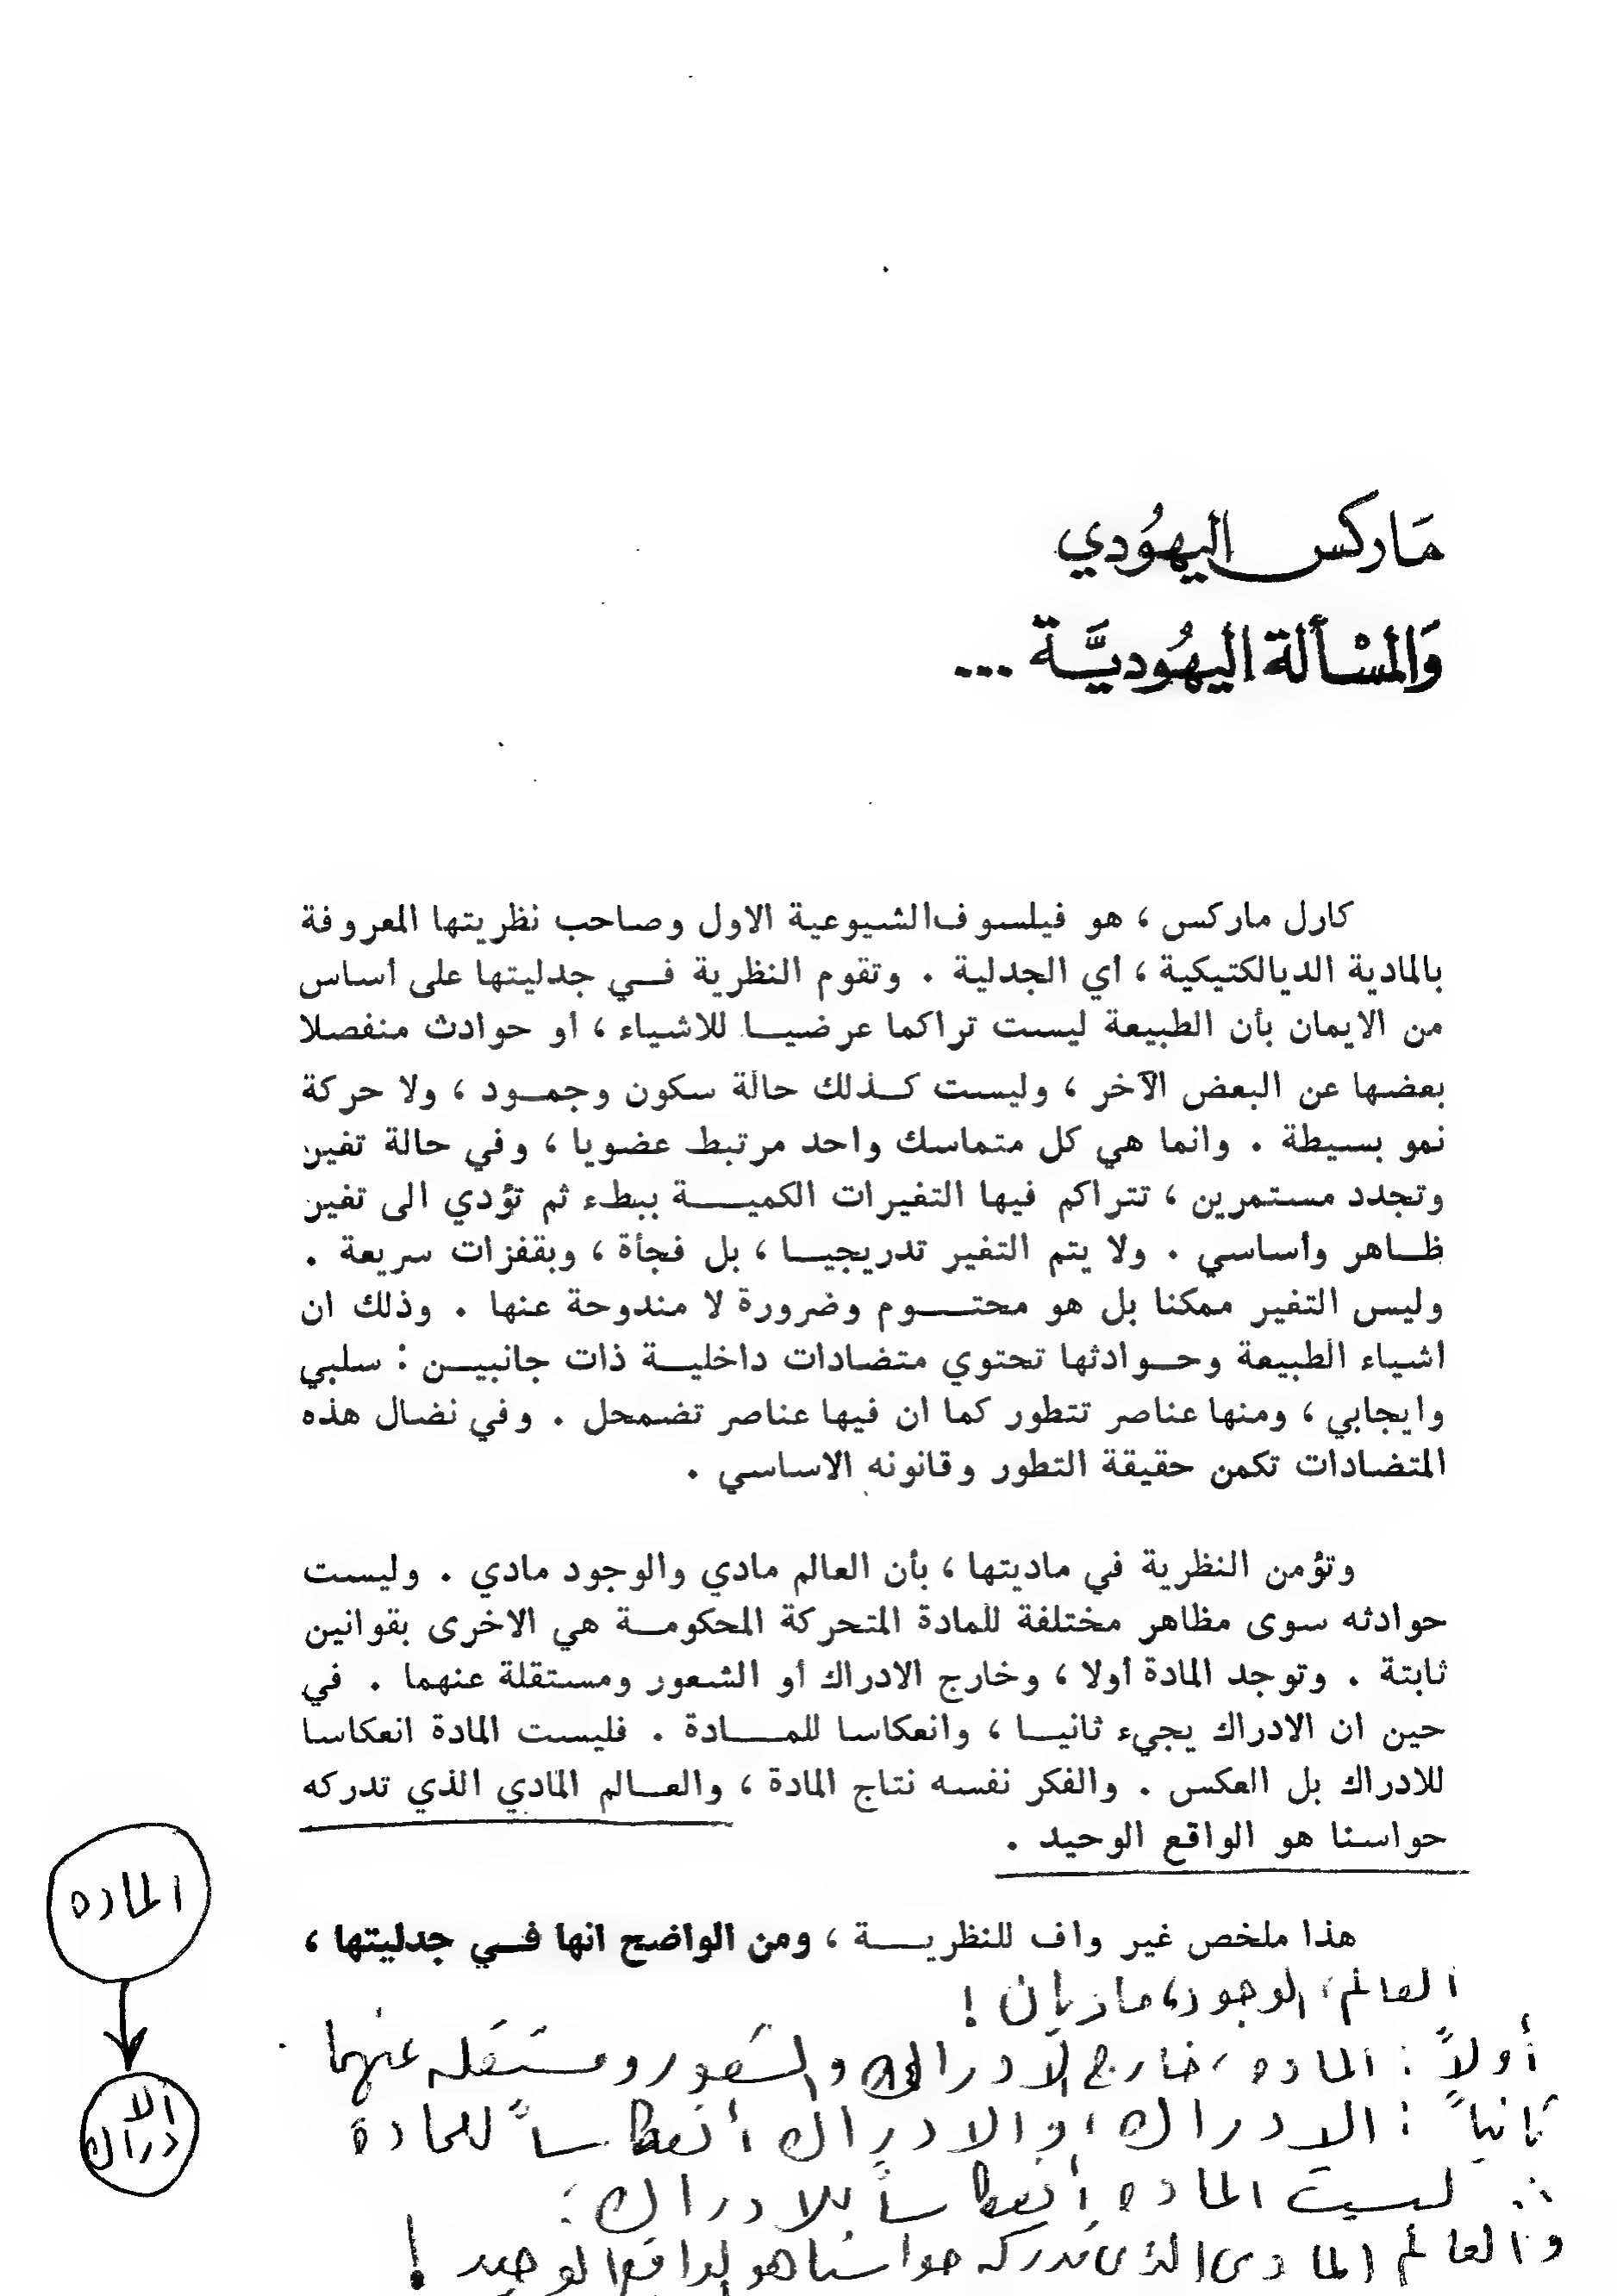 مَاركس اليهُودي
وَالمسْألة اليهُوديَّة ...
كارل ماركس ، هو فيلسوف الشيوعية الاول وصاحب نظريتها المعروفة
بالمادية الديالكتيكية ، أي الجدلية . وتقوم النظرية في جدليتها على أساس
من الايمان بأن الطبيعة ليست تراكما عرضيا للاشياء ، او حوادث منفصلا
بعضها عن البعض الآخر ، وليست كذلك حالة سكون وجمود ، ولا حركة
نمو بسيطة . وانما هي كل متماسك واحد مرتبط عضويا ، وفي حالة تغير
وتجدد مستمرين ، تتراكم فيها التغيرات الكمية ببطء ثم تؤدي الى تغير
ظاهر وأساسي . ولا يتم التغير تدريجيا ، بل فجأة ، وبقفزات سريعة .
وليس التغير ممكنا بل هو محتوم وضرورة لا مندوحة عنها . وذلك ان
اشياء الطبيعة وحوادثها تحتوي متضادات داخلية ذات جانبين : سلبي
وايجابي ، ومنها عناصر تتطور كما ان فيها عناصر تضمحل . وفي نضال هذه
المتضادات تكمن حقيقة التطور وقانونه الاساسي .
وتؤمن النظرية في ماديتها ، بأن العالم مادي والوجود مادي . وليست
حوادثه سوى مظاهر مختلفة للمادة المتحركة المحكومة هي الاخرى بقوانين
ثابتة . وتوجد المادة أولا ، وخارج الادراك أو الشعور ومستقلة عنهما . في
حين ان الادراك يجيء ثانيا ، وانعكاسا للمادة . فليست المادة انعكاسا
للادراك بل العكس . والفكر نفسه نتاج المادة ، والعالم المادي الذي تدركه
حواسنا هو الواقع الوحيد .
هذا ملخص غير واف للنظرية ، ومن الواضح انها في جدليتها ،
الماده
الا
دراك
العالم ، الوجود ، ماديان !
أولاً : الماده ، خارج الادراك والشعور ومستقله عنهما
ثانياً : الادراك ، والادراك أنعكاساً للمادة
∴ ليست الماده أنعكاساً للادراك :
والعالم المادى الذى تدركه حواسنا هو الواقع الوحيد !